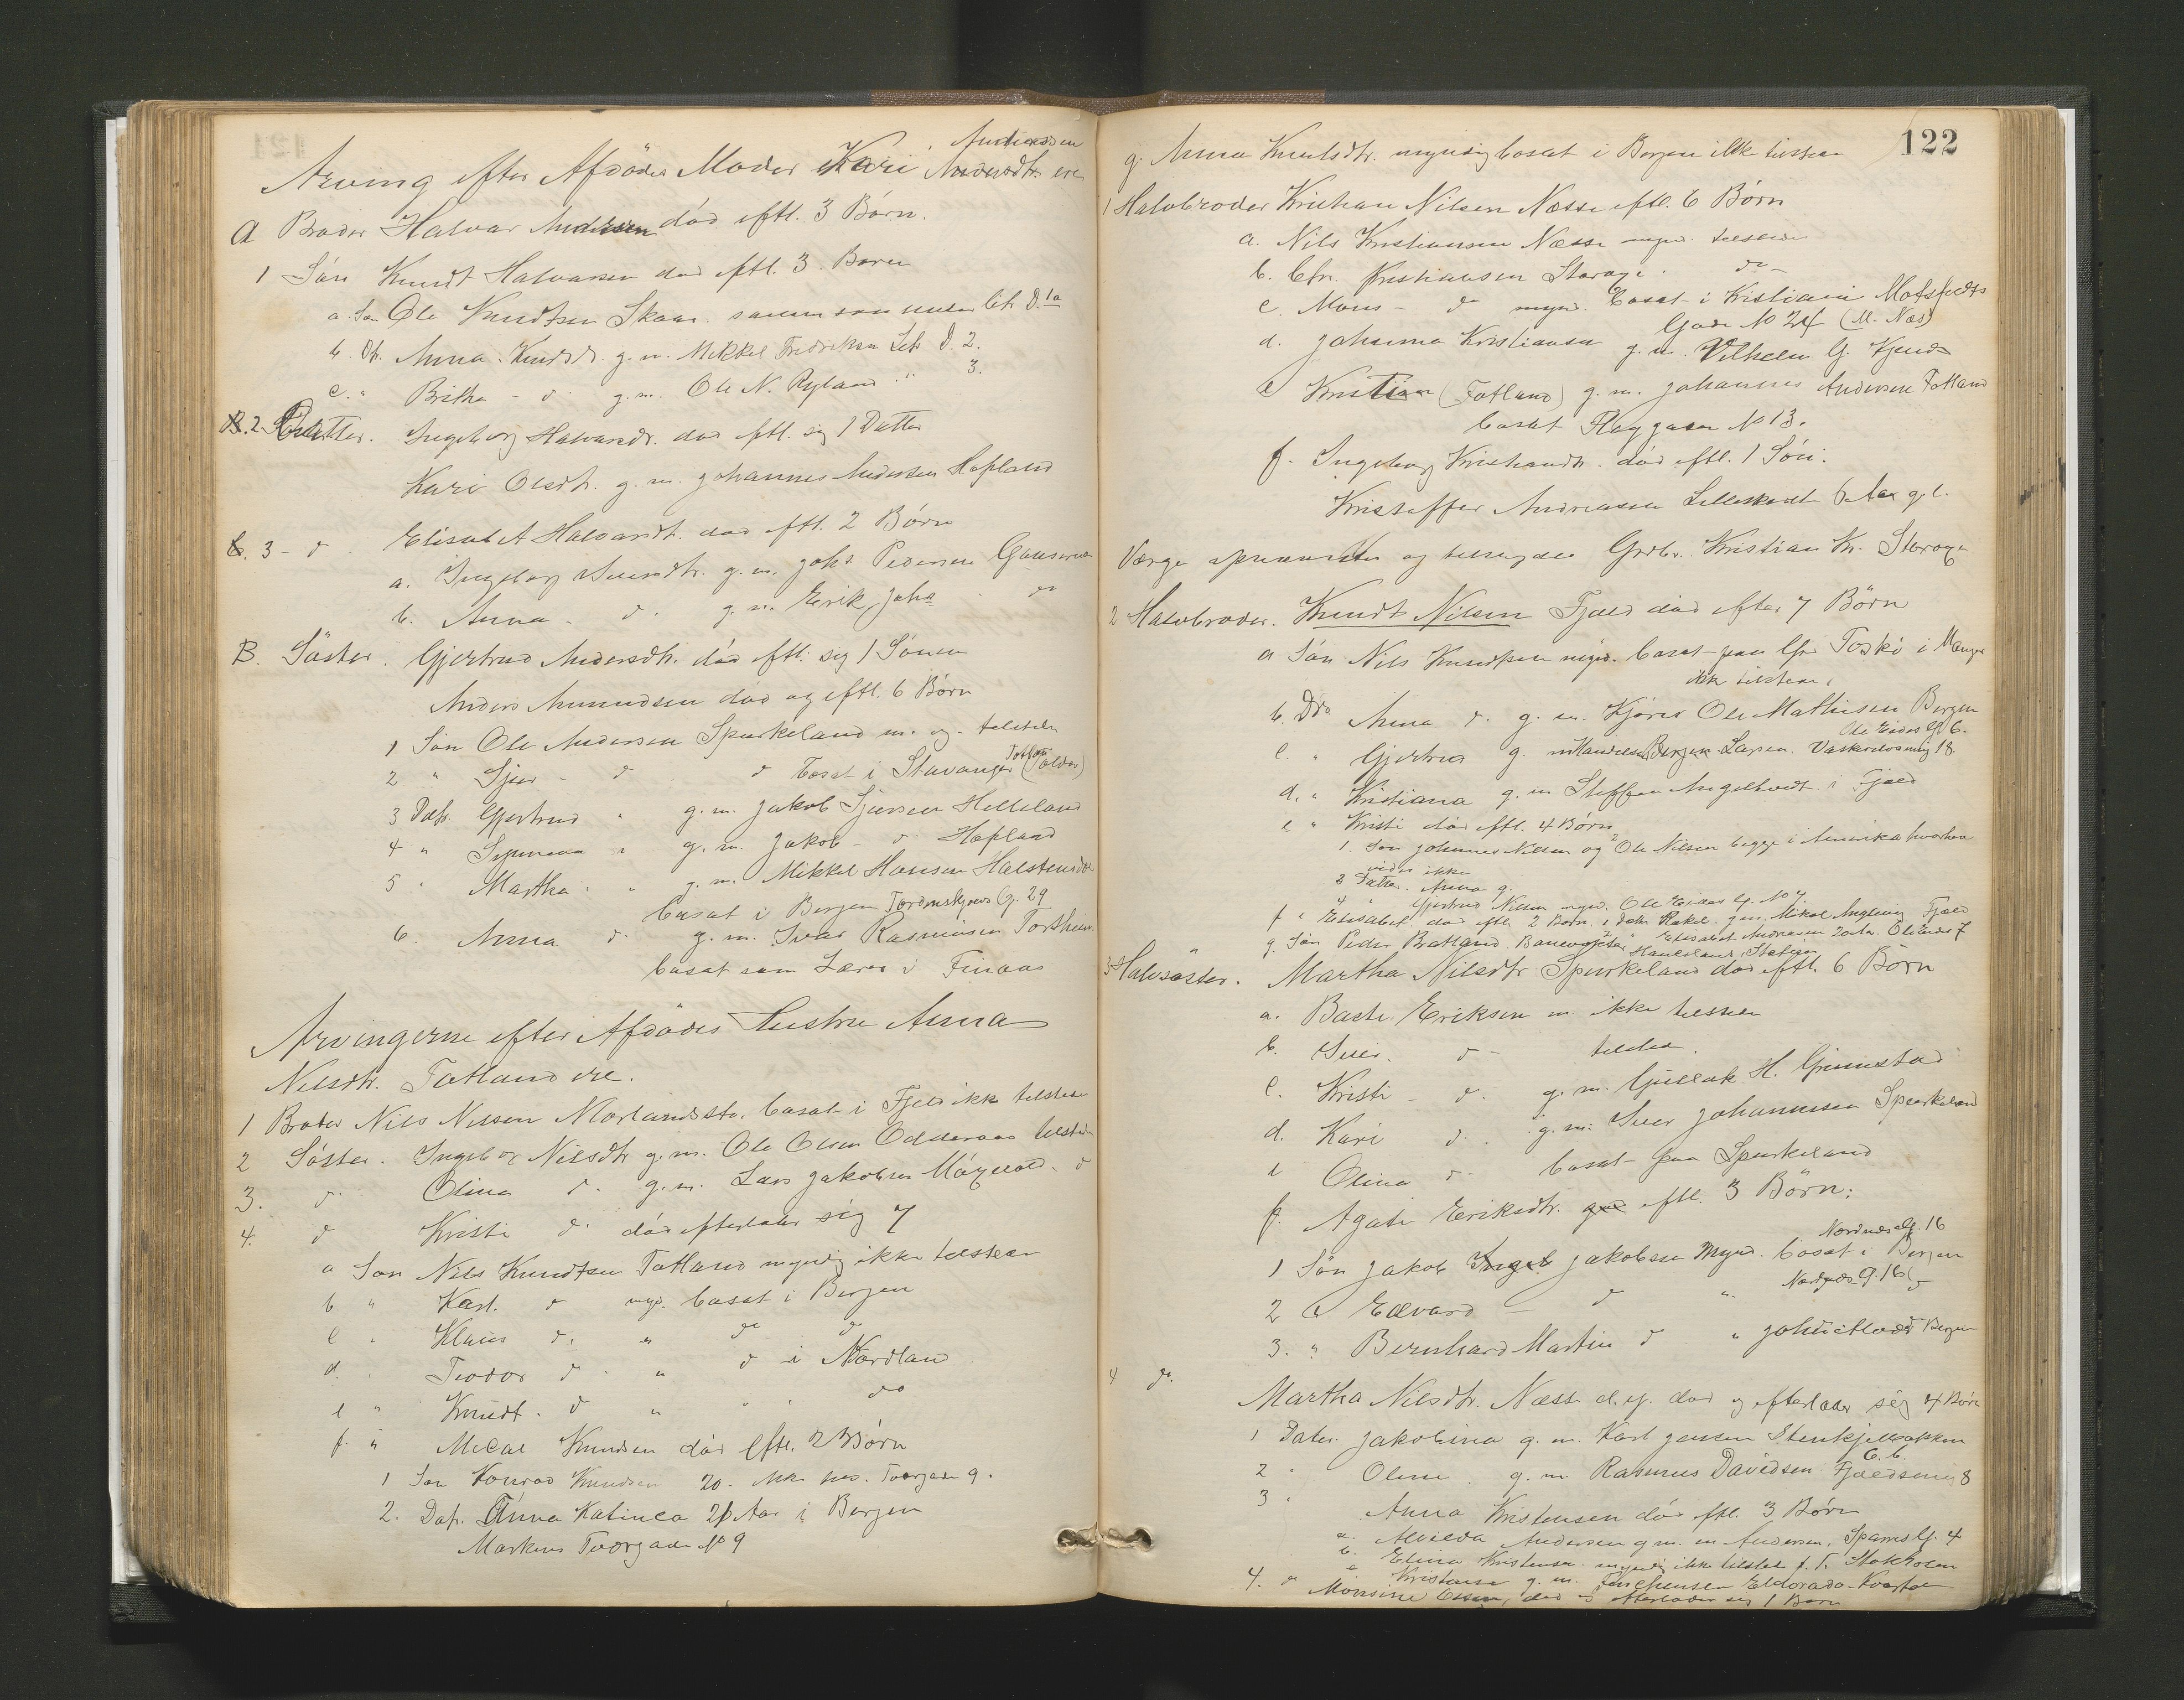 Arving efter Afdödes Moder Kari Andersdtr. ere
A Broder Halvar Andersen död eftl. 3 Börn.
1 Sön Knudt Halvarsen död eftl. 3 Børn
a. Søn Ole Knudtsen Skaar. samme som under Litr. D. 1a
b. Dtr. Anna Knudsdtr. g. m. Mikkel Fredriksen Litr. D. 2.
c. " Britha - d g. m. Ole N. Ryland " 3.
2 Datter. Ingeborg Halvarsdtr. død eftl. sig 1 Datter
Kari Olsdtr. g. m. Johannes Andersen Hopland
3 - d Elisabet Halvarsdtr. død eftl. 2 Børn
a. Ingeborg g. m. Johs Pedersen
b. Anna - d. g. m. Erik Johs do
B. Söster. Gjertrud Andersdtr. död eftl. sig 1 Sönn
Anders Amundsen död og eftl. 6 Börn
1 Søn Ole Andersen Spurkeland m. og tilstede
2 " Sjur - d d bosat i Stavanger
3 Datr. Gjertrud " g. m. Jakob Sjursen Helleland
4 " " g. m. Jakob - d Hopland
5 " Martha " g. m. Mikkel Hansen
bosat i Bergen Tordenskjolds G. 29
6. Anna d. g. m. Ivar Rasmusen
bosat som Lærer i Finaas
Arvingerne efter Afdødes Hustru Anna
Nilsdtr. Totland ere.
1 Broder Nils Nilsen bosat i Fjeld ikke tilstede
2 Söster. Ingeborg Nilsdtr g. m. Ole Olsen tilstede
3. d. Olina d. g. m. Lars Jakobsen d
4. d Kristi d. död efterlader sig 7
a Søn Nils Knudtsen Totland myndig ikke tilstede
b " Karl. d myd. bosat i Bergen
c " Klaus d. " do d
d. " Teodor d " d i Nordland
e " Knudt. d " " do
f. " Knudsen död eftl. 2 Børn
1 Søn Konrad Knudsen 20. Torvgade 9.
2. Datr. Anna Katinca 21 Aar i Bergen
Markens Torvgade No 9
122
g. Anna Knutsdtr. myndig bosat i Bergen ikke tilstede
1 Halvbroder Kristian Nilsen Næsse eftl. 6 Börn
a. Nils Kristiansen Næsse mynd. tilstede
b. Chr. Kristiansen Storøge. do -
c. Mons - d mynd. bosat i Kristiania
Gade No 24 (M. Næs)
d. Johanna Kristiansen g. m. Vilhelm G.
e (Totland) g. m. Johannes Andersen Totland
bosat No 13.
f. Ingeborg Kristiansdtr. død eftl. 1 Sön:
Kristoffer Andreasen 6 Aar gl.
Værge Grdbr. Kristian Kr. Storøge
2 Halvbroder. Knudt Nilsen Fjeld död efter 7 Börn
a Sön Nils Knudtsen mynd. bosat paa Toskö i Manger
ikke tilstede.
b. Dtr Anna d. g. m. Kjører Ole Mathisen Bergen
Ole Eides G. 6.
c. " Gjertrud g. m. Larsen.
d. " Kristiana g. m. Steffen i Fjeld
e " Kristi död eftl. 4 Børn
1. Søn Johannes Nilsen og 2 Ole Nilsen begge i Amerika
vides ikke
3 Datter. Anna g.
4 " Gjertrud Nilsen mynd. Ole Eides G. No 7
f " Elisabet død eftl. 2 Børn. 1 Dattr Rakel. g. m. Mikal Fjeld
g. Søn Peder Bratland. Elisabet Andreasen
3 Halvsøster. Martha Nilsdtr Spurkeland død eftl. 6 Børn
a. Eriksen m ikke tilstede
b. Siver. d - tilstede.
c. Kristi - d. g. m. H.
d. Kari d. g. m. Siver Johannesen Spurkeland
e Olina d - bosat paa Spurkeland
f. Agate Eriksdtr. eftl. 3 Börn:
Nordnæs G. 16
1 Sön Jakob Jakobsen mynd. bosat i Bergen
Nordnæs G. 16
2 d Edvard - d "
3. " Bernhard Martin d " Bergen
4 do. Martha Nilsdtr. Næsse d. y. død og efterlader sig 4 Børn
1 Dater. Jakobina g. m. Karl Jensen
2 " Oline g. m. Rasmus Davidsen 8
3 " Anna Kristensen död eftl. 3 Børn
a. Andersen g. m. Andersen, G. 4
b. Elina Kristensen myndig ikke tilstede
c Kristense g. m. Eldorado
4. d Monsine død og efterlader sig 1 Barn